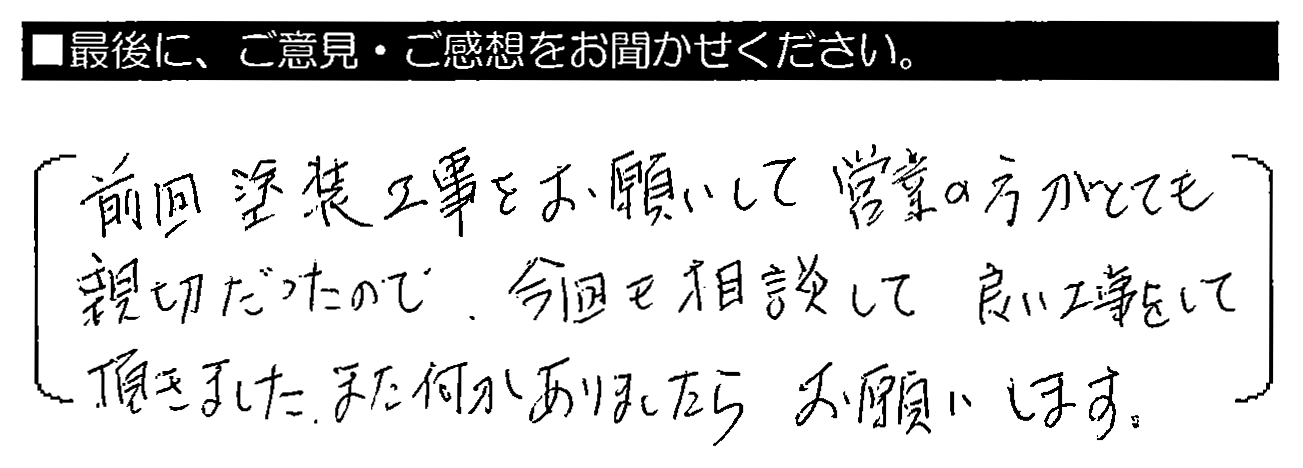 ■最後に、ご意見・ご感想をお聞かせください。
前回塗装工事をお願いして営業の方がとても
親切だったので、今回も相談して良い工事をして
頂きました、また何かありましたらお願いします。